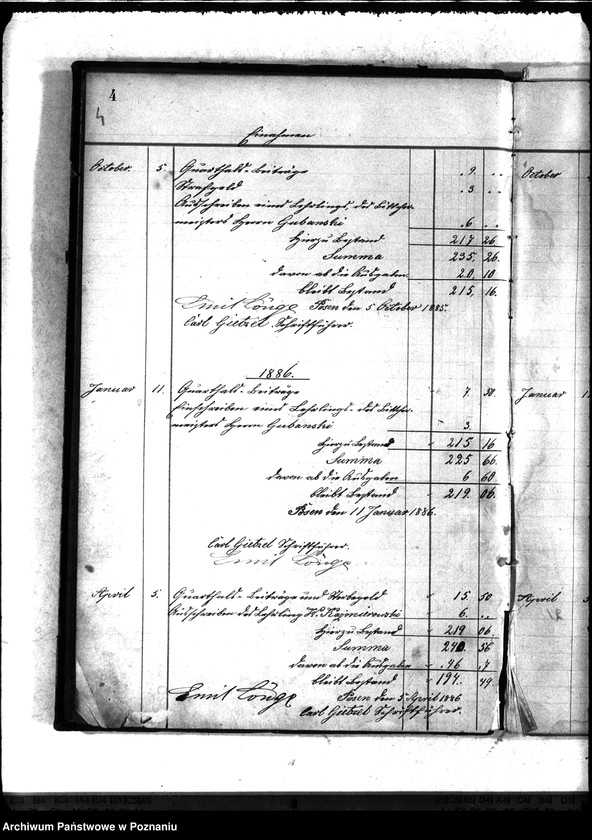 4
4
Einahmen
October. 5. Quarthals-Beiträge .9. ..
Strafgeld .3 ..
Außschreiben eines Lehrlings, des Böttcher-
meisters Herrn Gubanski .6. ..
Hierzu Bestand 217 26.
Summa 235. 26.
davon ab die Ausgaben 20. 10
bleibt Bestand 215. 16.
Posen den 5 October 1885.
Carl Gietzel. Schriftführer.
1886.
Januar 11. Quarthals-Beiträge 7. 50.
Einschreiben eines Lehrlings, des Böttcher-
meisters Herrn Gubanski 3.
Hierzu Bestand 215 16
Summa 225 66.
davon ab die Ausgaben 6 60
bleibt Bestand 219. 06.
Posen den 11 Januar 1886.
Carl Gietzel Schriftführer.
April 5. Quarthals-Beiträge und Sterbegeld 15 50
Außschreiben des Lehrling K. Kazmierowski 6. ..
Hierzu Bestand 219 06.
Summa 240. 56
davon ab die Ausgaben .46 .7
bleibt Bestand 194. 49
Posen den 5 April 1886
Carl Gietzel Schriftführer.
October
Januar
April
Archiwum Państwowe w Poznaniu